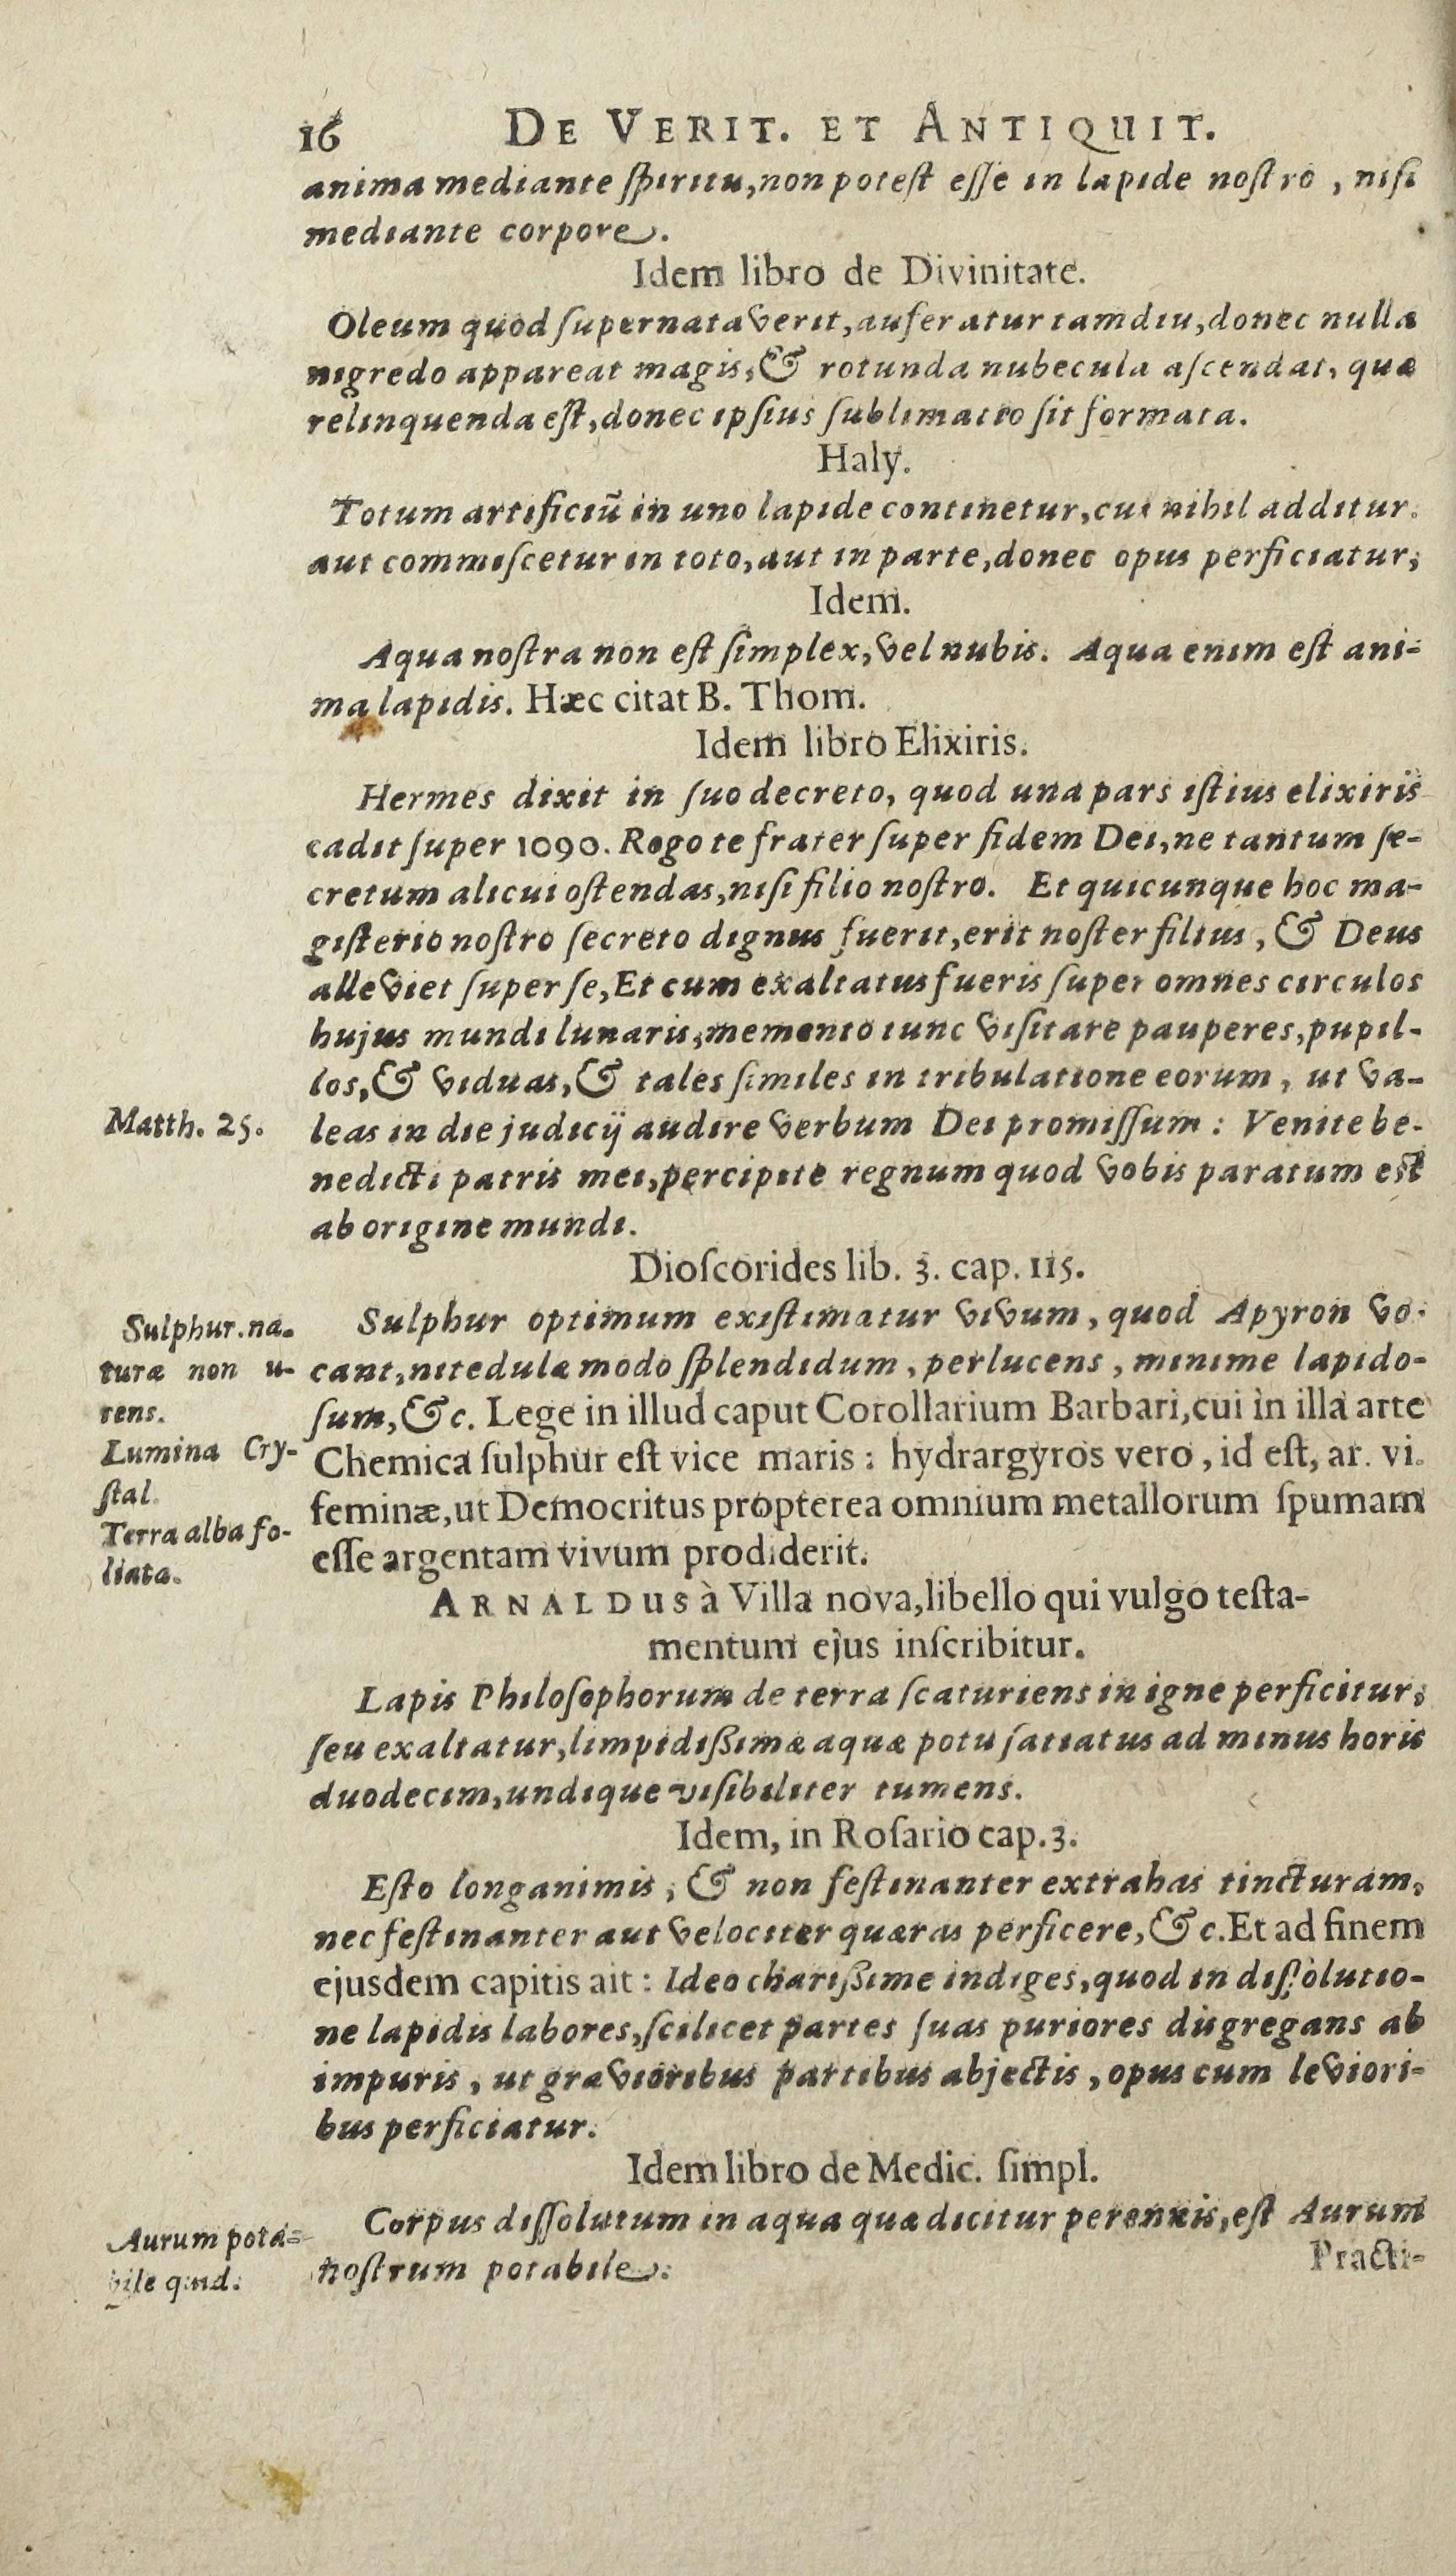 16 DE VERIT. ET ANTIQUIT.
anima mediante ſpiritu, non poteſt eſſe in lapide noſtro, niſi
mediante corpore.
Idem libro de Divinitate.
Oleum quod ſupernataverit, auferatur tamdiu, donec nulla
nigredo appareat magis, & rotunda nubecula aſcendat, quæ
relinquenda eſt, donec ipſius ſublimatio ſit formata.
Haly.
Totum artificiũ in uno lapide continetur, cui nihil additur.
aut commiſcetur in toto, aut in parte, donec opus perficiatur;
Idem.
Aqua noſtra non eſt ſimplex, vel nubis. Aqua enim eſt ani-
ma lapidis. Hæc citat B. Thom.
Idem libro Elixiris.
Hermes dixit in ſuo decreto, quod una pars iſtius elixiris
cadit ſuper 1090. Rogo te frater ſuper fidem Dei, ne tantum ſe-
cretum alicui oſtendas, niſi filio noſtro. Et quicunque hoc ma-
giſterio noſtro ſecreto dignus fuerit, erit noſter filius, & Deus
alleviet ſuper ſe, Et cum exaltatus fueris ſuper omnes circulos
hujus mundi lunaris, memento tunc viſitare pauperes, pupil-
los, & viduas, & tales ſimiles in tribulatione eorum, ut va-
Matth. 25.
leas in die judicij audire verbum Dei promiſſum: Venite be-
nedicti patris mei, percipite regnum quod vobis paratum eſt
ab origine mundi.
Dioſcorides lib. 3. cap. 115.
Sulphur. na-
turæ non u-
rens.
Lumina Cry-
ſtal.
Terra alba fo-
liata.
Sulphur optimum exiſtimatur vivum, quod Apyron vo-
cant, nitedulæ modo ſplendidum, perlucens, minime lapido-
ſum, &c. Lege in illud caput Corollarium Barbari, cui in illa arte
Chemica ſulphur eſt vice maris: hydrargyros vero, id eſt, ar. vi.
feminæ, ut Democritus propterea omnium metallorum ſpumam
eſſe argentam vivum prodiderit.
ARNALDUS à Villa nova, libello qui vulgo teſta-
mentum ejus inſcribitur.
Lapis Philoſophorum de terra ſcaturiens in igne perficitur,
ſeu exaltatur, limpidißimæ aquæ potu ſatiatus ad minus horis
duodecim, undique viſibiliter tumens.
Idem, in Roſario cap. 3.
Eſto longanimis, & non feſtinanter extrahas tincturam,
nec feſtinanter aut velociter quæras perficere, &c. Et ad finem
ejusdem capitis ait: Ideo charißime indiges, quod in diſſolutio-
ne lapidis labores, ſcilicet partes ſuas puriores diſgregans ab
impuris, ut gravioribus partibus abjectis, opus cum leviori-
bus perficiatur.
Idem libro de Medic. ſimpl.
Aurum pota-
bile quid.
Corpus diſſolutum in aqua quæ dicitur perennis, eſt Aurum
noſtrum potabile.
Practi-